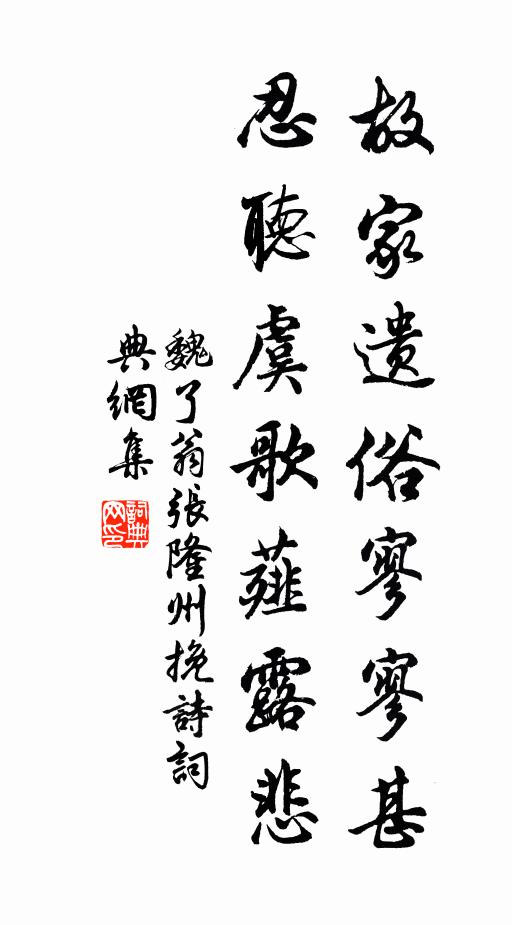 故家遺俗寥寥甚
忍聽虞歌薤露悲
魏了翁張隆州挽詩詞
典網集
詞典
网印